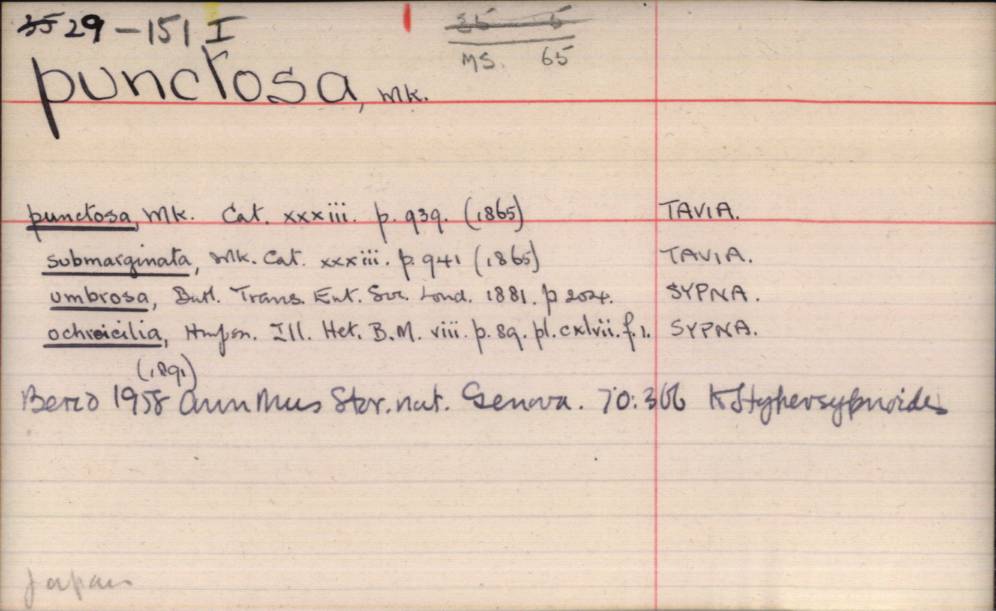 29-151 I
MS. 65
punctosa, Wlk.
punctosa, Wlk. Cat. xxxiii. p. 939. (1865) TAVIA.
submarginata, Wlk. Cat. xxxiii. p 941 (1865) TAVIA.
umbrosa, Butl. Trans. Ent. Soc. Lond. 1881. p 204. SYPNA.
ochreicilia, Hmpsn. Ill. Het. B.M. viii. p. 89. pl. cxlvii. f. 1. SYPNA.
(1891)
Berio 1958 Ann Mus Stor. nat. Genova. 70: 366 to Hypersypnoides
Japan